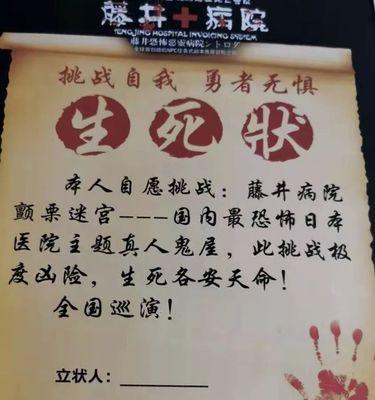 藤井十病院
TENG JING HOSPITAL INVOICING SYSTEM
藤井恐怖惡靈病院シトロダ
挑战自我 勇者无惧
生死狀
本人自愿挑战：藤井病院
颤栗迷宫---国内最恐怖日本
医院主题真人鬼屋，此挑战极
度凶险，生死各安天命！
全国巡演！
立状人：